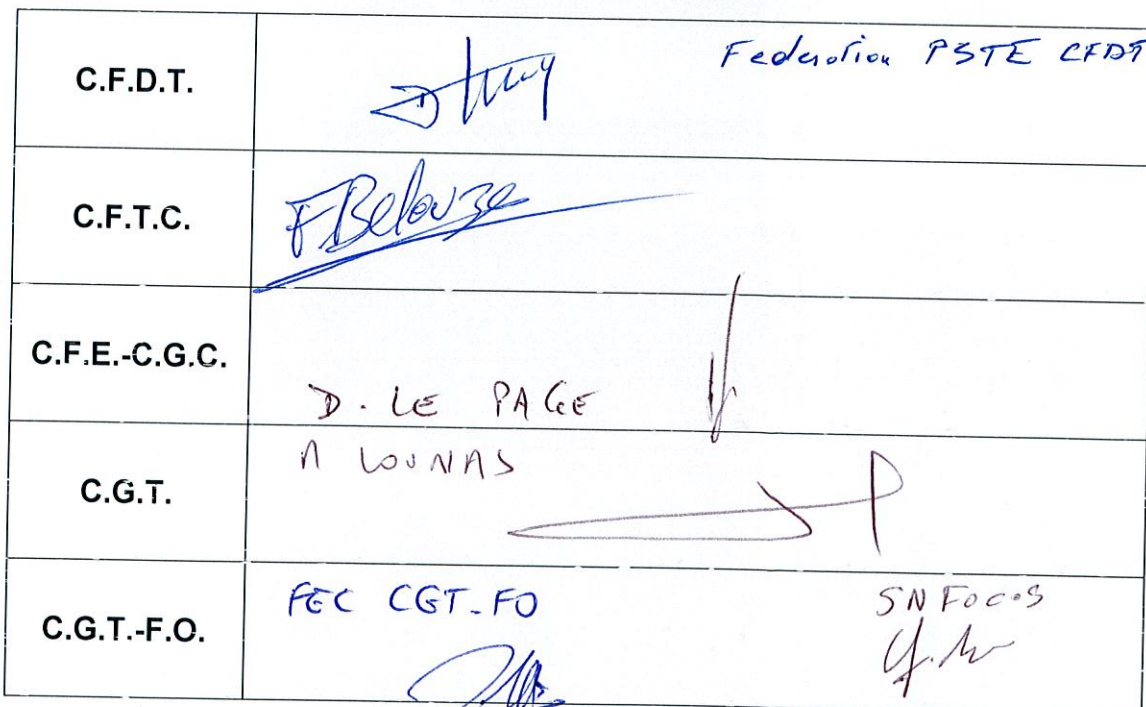 C.F.D.T.
Federation PSTE CFDT
C.F.T.C.
F Belouze
C.F.E.-C.G.C.
D. LE PAGE
C.G.T.
A LOUNAS
C.G.T.-F.O.
FEC CGT-FO
SNFOCOS